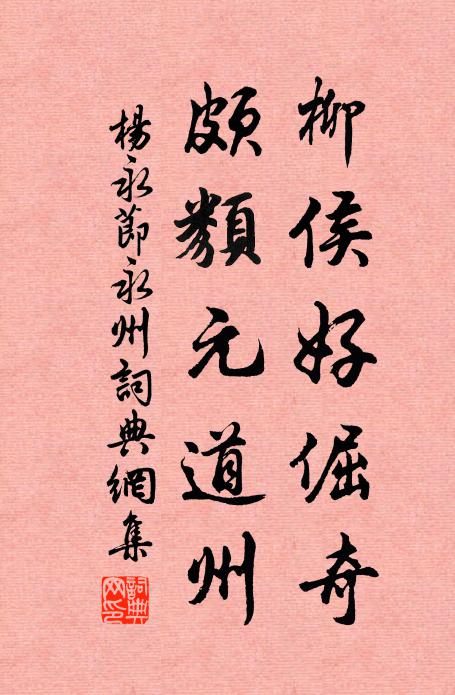 柳侯好倔奇
頗類元道州
楊永節永州詞典網集
詞典网印